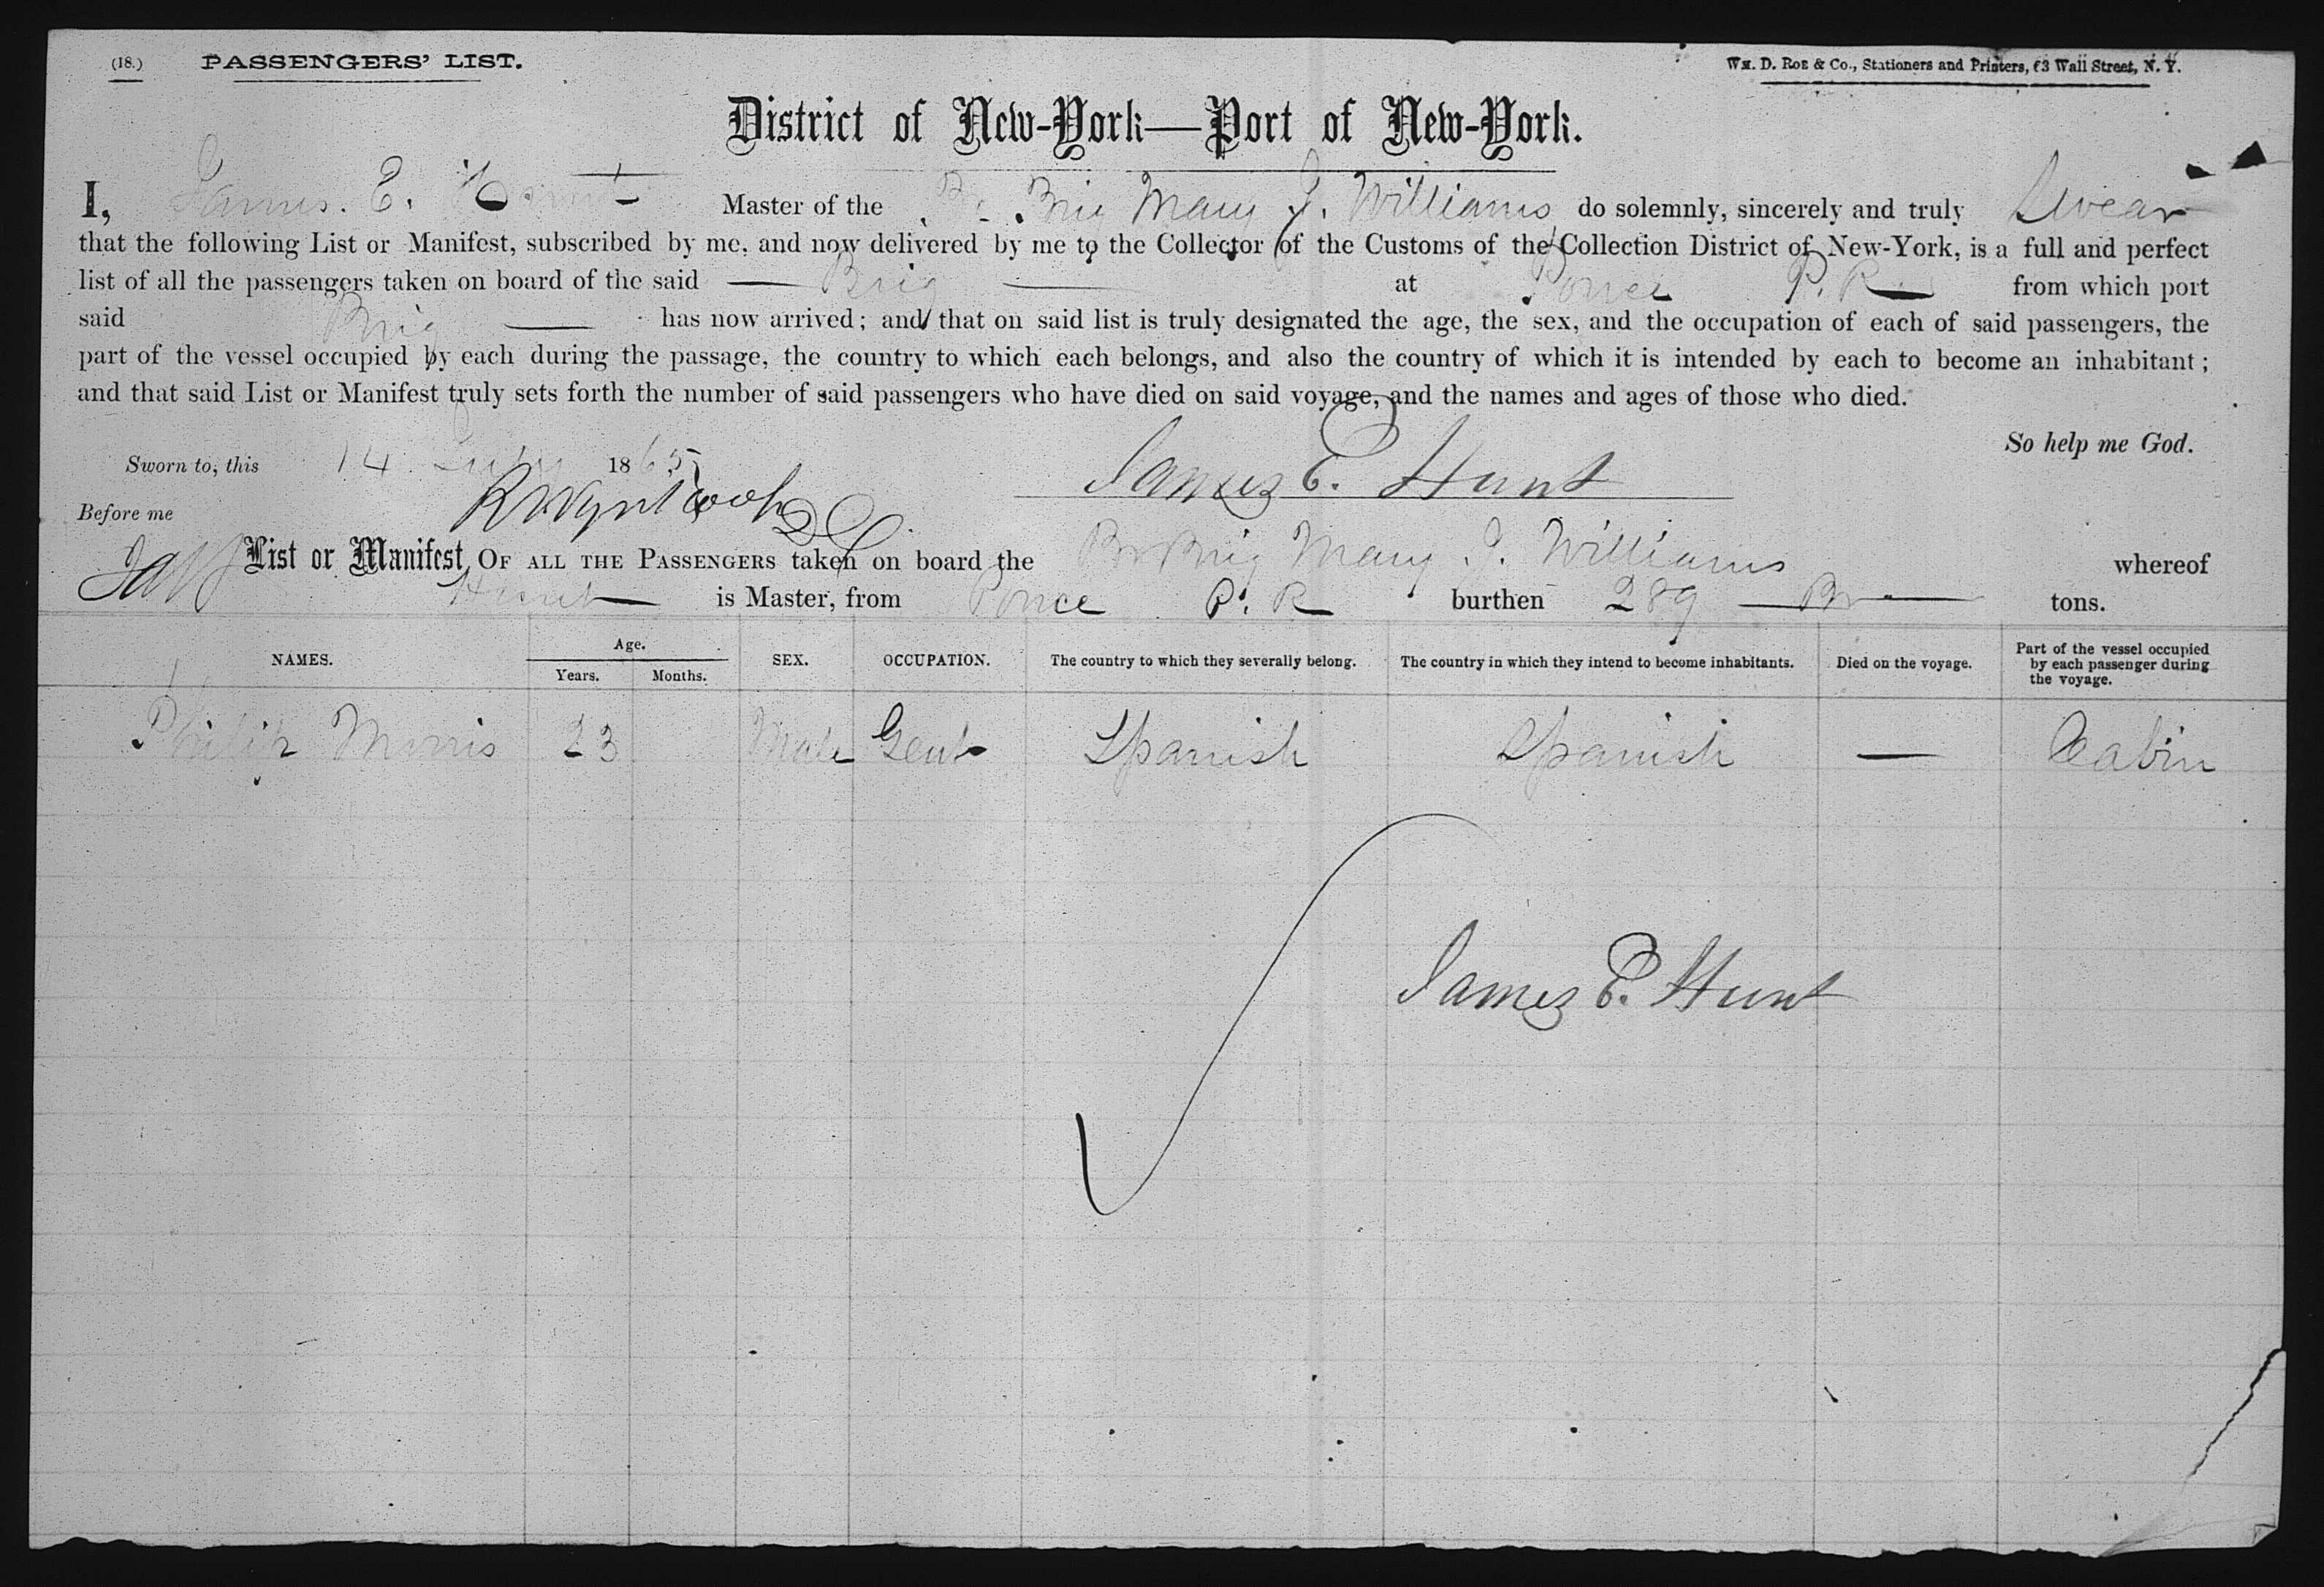 (18.) PASSENGERS' LIST. Wm. D. Roe & Co., Stationers and Printers, 63 Wall Street, N. Y.
District of New-York—Port of New-York.
I, James. E. Hunt Master of the Br. Brig Mary J. Williams do solemnly, sincerely and truly Swear
that the following List or Manifest, subscribed by me, and now delivered by me to the Collector of the Customs of the Collection District of New-York, is a full and perfect
list of all the passengers taken on board of the said — Brig — at Ponce P. R. from which port
said Brig — has now arrived; and that on said list is truly designated the age, the sex, and the occupation of each of said passengers, the
part of the vessel occupied by each during the passage, the country to which each belongs, and also the country of which it is intended by each to become an inhabitant;
and that said List or Manifest truly sets forth the number of said passengers who have died on said voyage, and the names and ages of those who died.
So help me God.
Sworn to, this 14 July 1865 James E. Hunt
Before me
List or Manifest OF ALL THE PASSENGERS taken on board the Br Brig Mary J. Williams whereof
Hunt is Master, from Ponce P. R burthen 289 — Br — tons.
NAMES. Age. Years. Months. SEX. OCCUPATION. The country to which they severally belong. The country in which they intend to become inhabitants. Died on the voyage. Part of the vessel occupied by each passenger during the voyage.
Philip Morris 23 Male Gent Spanish Spanish — Cabin
James E. Hunt